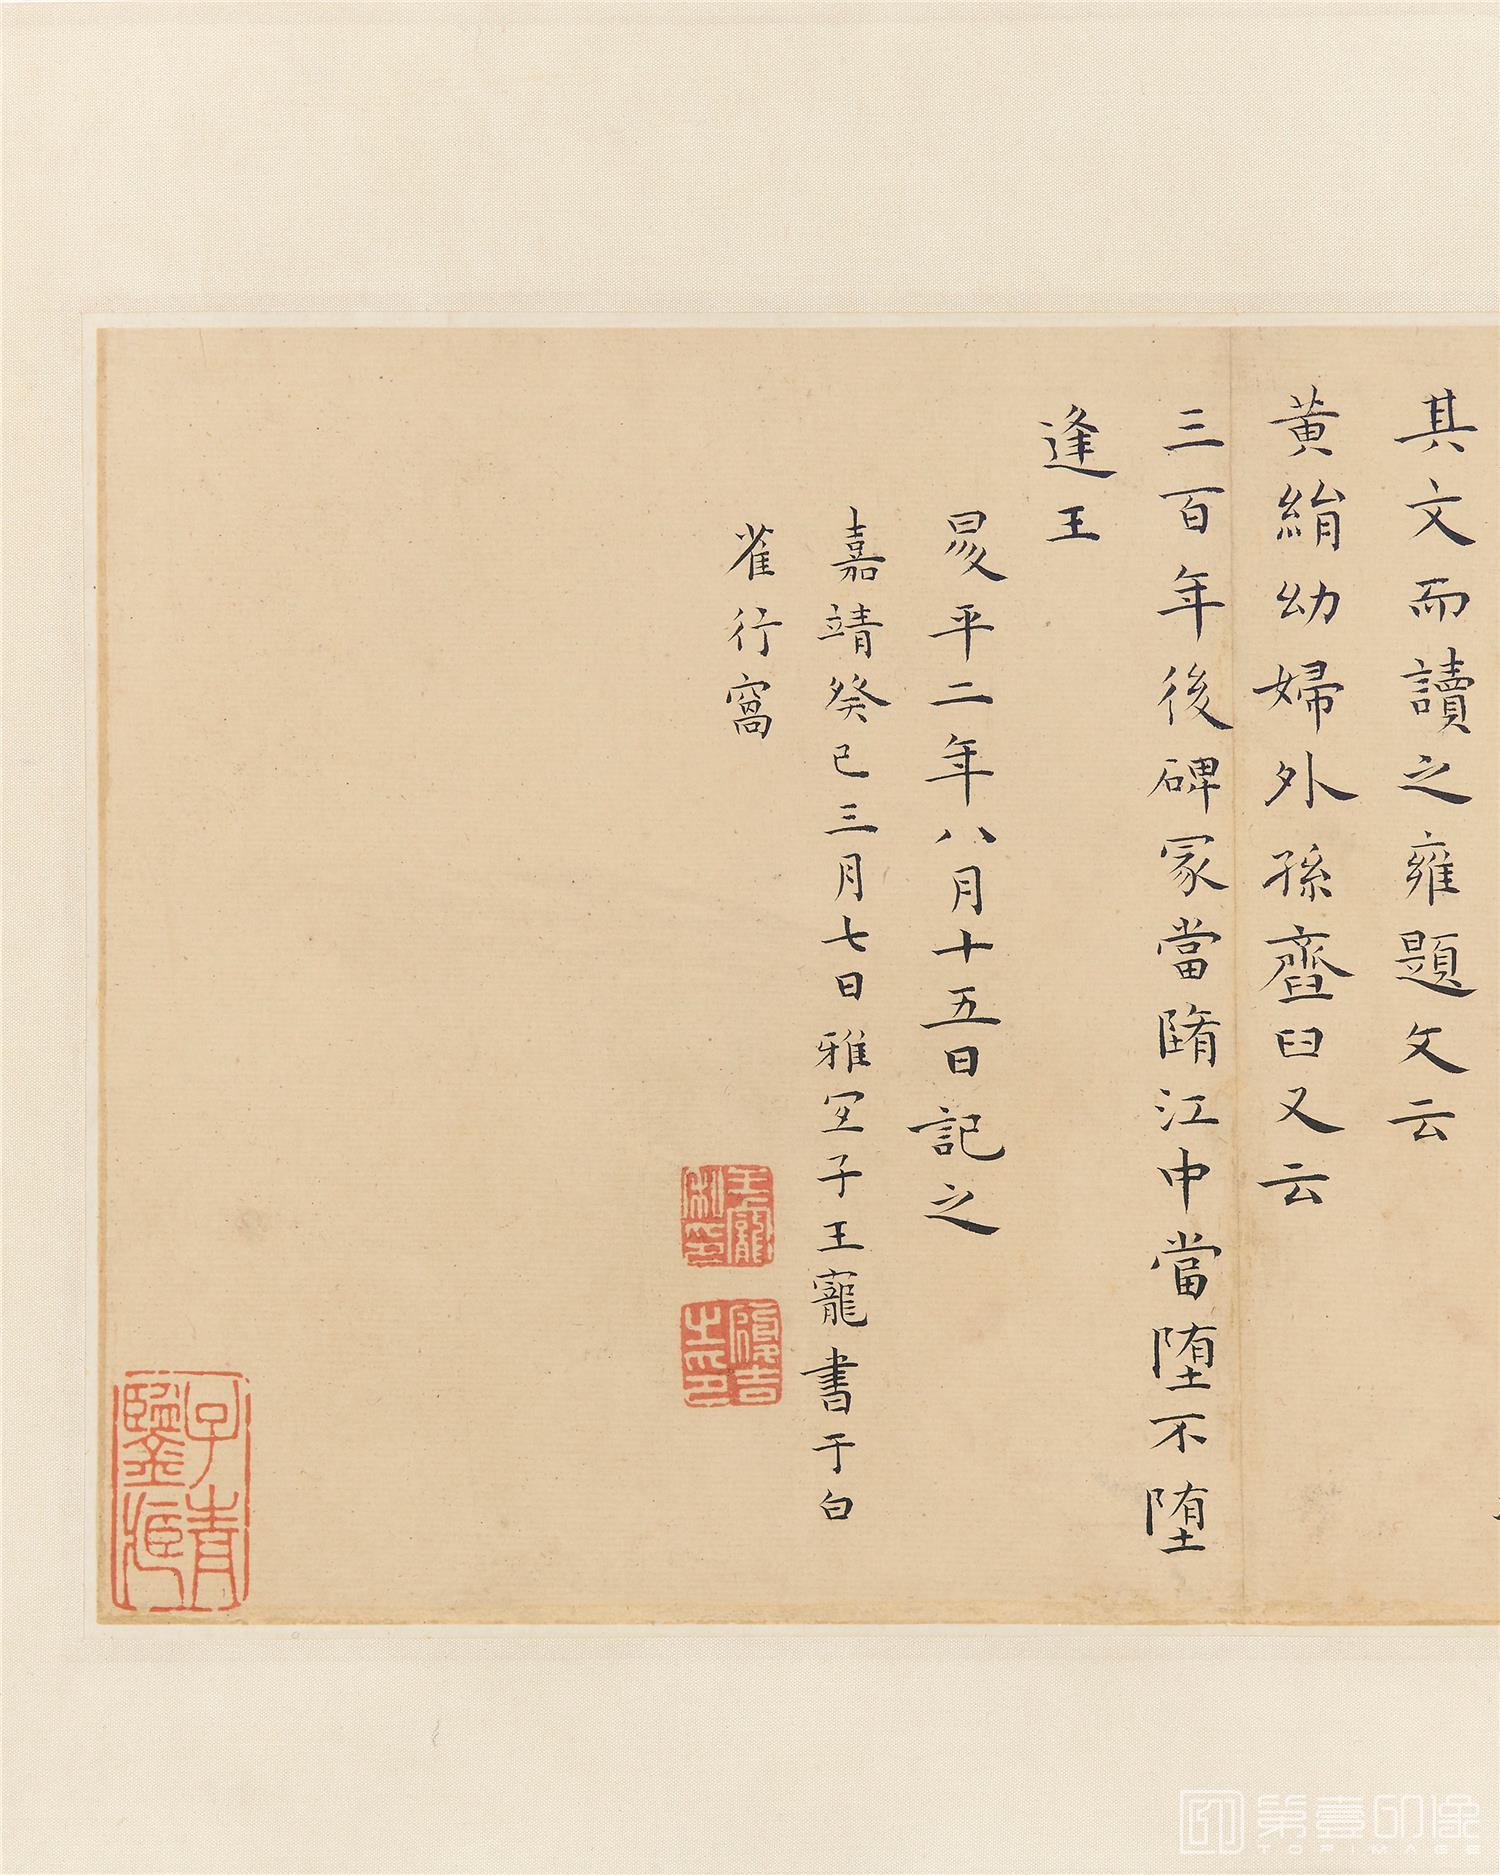 其文而讀之雍題文云
黃絹幼婦外孫齏臼又云
三百年後碑冢當隋江中當堕不堕
逢王
昇平二年八月十五日記之
嘉靖癸巳三月七日雅宜子王寵書于白
雀行窩
王寵私印
履吉之印
子青鑒藏
第壹印像
TOPIMAGE